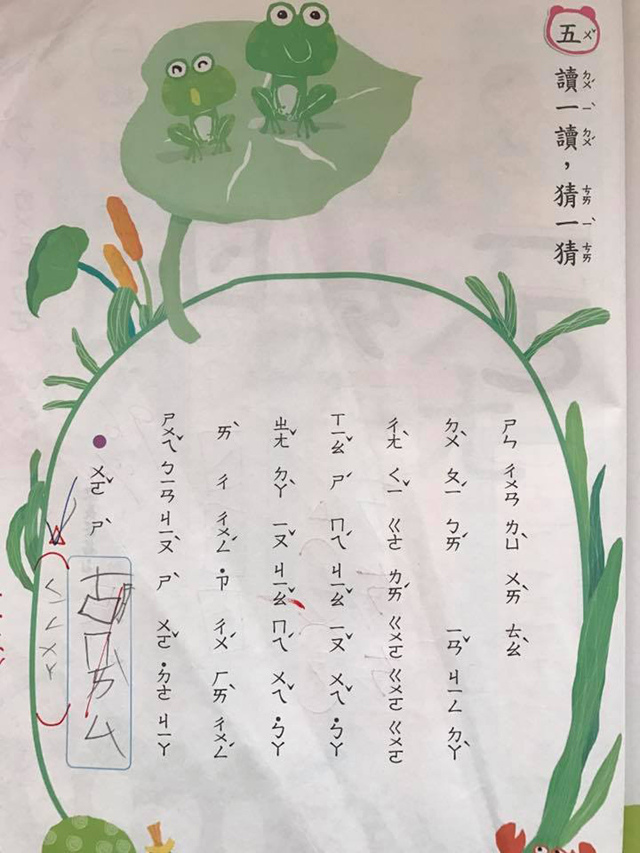 五ㄨˇ
讀ㄉㄨˊ一ㄧˋ讀ㄉㄨˊ，猜ㄘㄞ一ㄧˋ猜ㄘㄞ
ㄕㄣ ㄔㄨㄢ ㄌㄩˋ ㄨㄞˋ ㄊㄠˋ
ㄉㄨˋ ㄆㄧˊ ㄅㄞˊ ㄧㄢˇ ㄐㄧㄥ ㄉㄚˋ
ㄔㄤˋ ㄑㄧˇ ㄍㄜ ㄌㄞˊ ㄍㄨㄛ ㄍㄨㄛ ㄍㄨㄛ
ㄒㄧㄠˇ ㄕˊ ㄇㄟˊ ㄐㄧㄠˇ ㄧㄡˇ ㄨㄟˇ ˙ㄅㄚ
ㄓㄤˇ ㄉㄚˋ ㄧㄡˇ ㄐㄧㄠˇ ㄇㄟˊ ㄨㄟˇ ˙ㄅㄚ
ㄞˋ ㄔ ㄔㄨㄥˊ ˙ㄗ ㄔㄨˊ ㄏㄞˋ ㄔㄨㄥˊ
ㄕㄨㄟˇ ㄅㄧㄢ ㄐㄧㄡˋ ㄕˋ ㄨㄛˇ ˙ㄉㄜ ㄐㄧㄚ
ㄨㄛˇ ㄕˋ
ㄑㄧㄥ ㄨㄚ